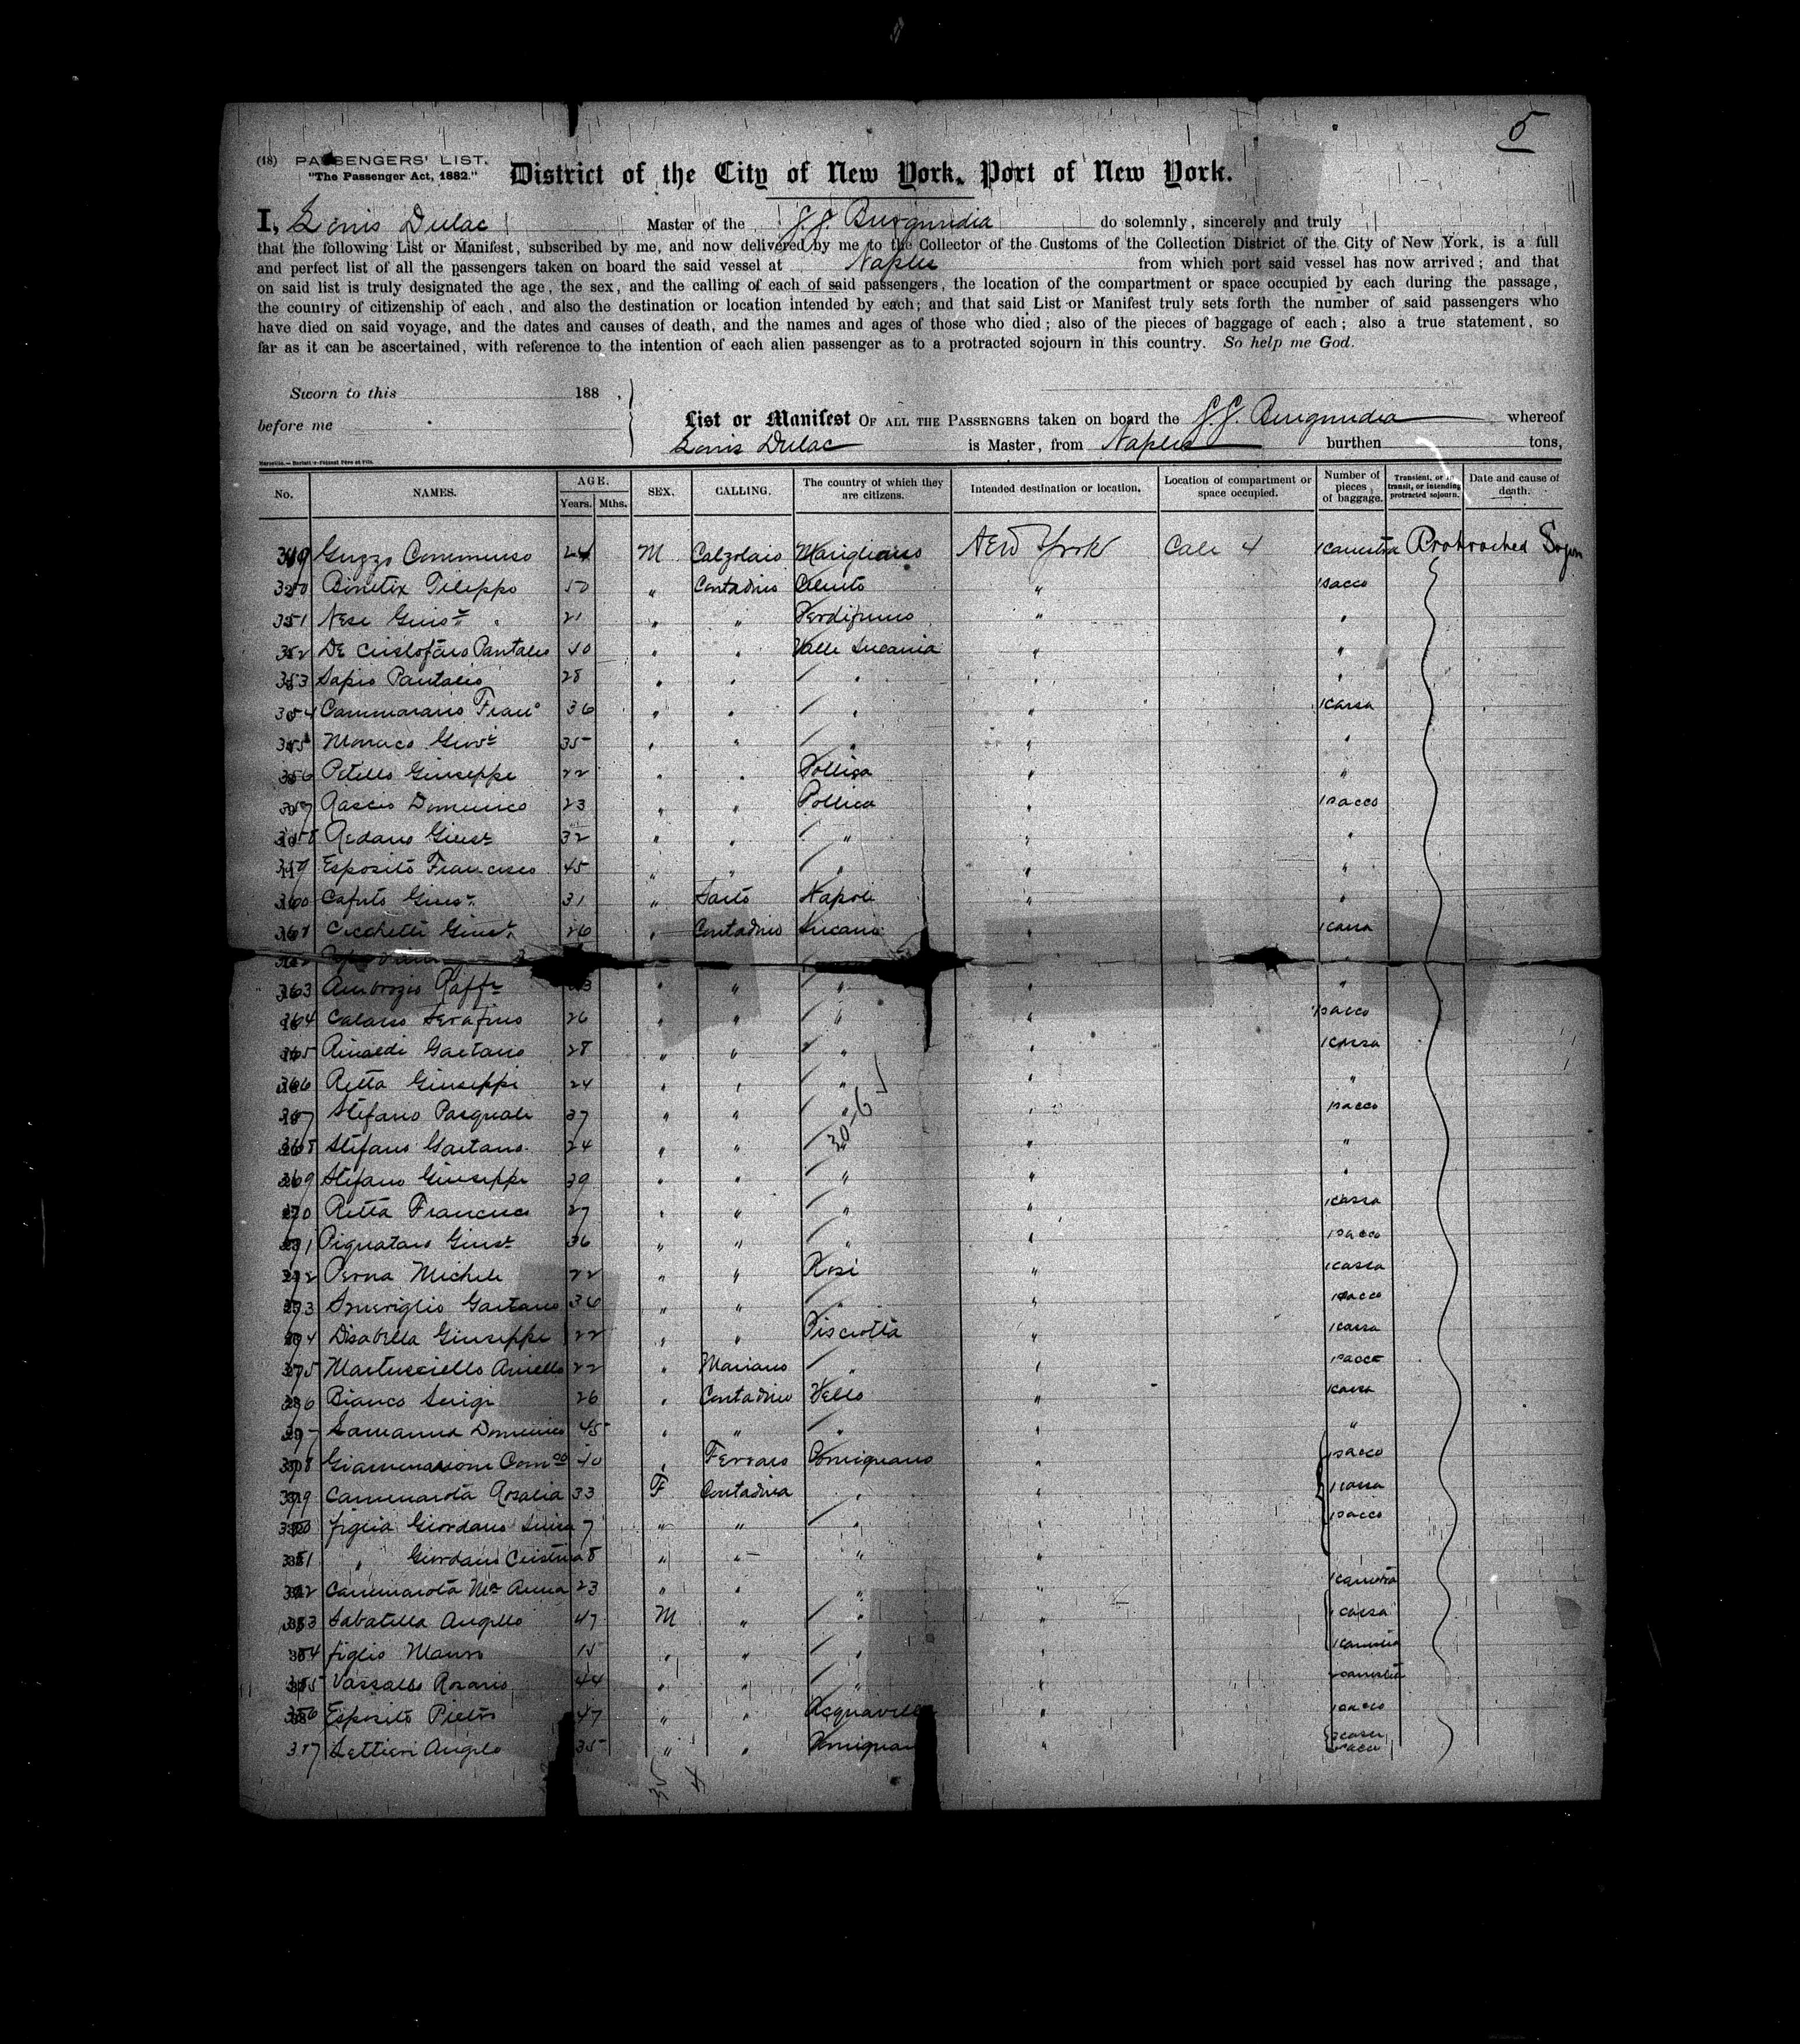 5
(18) PASSENGERS' LIST.
"The Passenger Act, 1882."
District of the City of New York, Port of New York.
I, Louis Dulac Master of the S.S. Burgundia do solemnly, sincerely and truly
that the following List or Manifest, subscribed by me, and now delivered by me to the Collector of the Customs of the Collection District of the City of New York, is a full
and perfect list of all the passengers taken on board the said vessel at Naples from which port said vessel has now arrived; and that
on said list is truly designated the age, the sex, and the calling of each of said passengers, the location of the compartment or space occupied by each during the passage,
the country of citizenship of each, and also the destination or location intended by each; and that said List or Manifest truly sets forth the number of said passengers who
have died on said voyage, and the dates and causes of death, and the names and ages of those who died; also of the pieces of baggage of each; also a true statement, so
far as it can be ascertained, with reference to the intention of each alien passenger as to a protracted sojourn in this country. So help me God.
Sworn to this 188 ,
before me
List or Manifest OF ALL THE PASSENGERS taken on board the S.S. Burgundia whereof
Louis Dulac is Master, from Naples burthen tons,
No. NAMES. AGE. Years. Mths. SEX. CALLING. The country of which they are citizens. Intended destination or location. Location of compartment or space occupied. Number of pieces of baggage. Transient, or in transit, or intending protracted sojourn. Date and cause of death.
349 Guzzo M Calzolaio Marigliano New York Cale 4 1 canestra Protracted
350 Filippo 50 " Contadino Cilento " 1 sacco
351 Nese Gius. 21 " " Perdifumo " "
352 De Cristofaro Pantaleo 40 " " Valle Lucania " "
353 Sapio Pantaleo 28 " " " " "
354 Cammarano Franc 36 " " " " 1 cassa
355 Monaco 35 " " " " "
356 Petillo Giuseppe 22 " " Pollica " "
357 Rascio Domenico 23 " " Pollica " 1 sacco
358 Redano Gius 32 " " " " "
359 Esposito Francesco 45 " " " " "
360 Caputo Gius. 31 " Sarto Napoli " "
361 Cicchetti Gius. 26 " Contadino Lucania " 1 cassa
362
363 Ambrozio Raff " " " " "
364 Serafino 26 " " " " 1 sacco
365 Rinaldi Gaetano 28 " " " " 1 cassa
366 Retta Giuseppe 24 " " " " "
367 Stefano Pasquale 37 " " " " 1 sacco
368 Stefano Gaetano 24 " " 30-6 " "
369 Stefano Giuseppe 39 " " " " "
370 Retta Francesco 27 " " " " 1 cassa
371 Pignataro Gius 36 " " " " 1 sacco
372 Perna Michele 22 " " Rosi " 1 cassa
373 Smeriglio Gaetano 36 " " " " 1 sacco
374 Disabella Giuseppe 22 " " Pisciotta " 1 cassa
375 Martusciello Aniello 22 " Marinaro " " 1 sacco
376 Bianco Luigi 26 " Contadino " 1 cassa
377 Lamanna Domenico 45 " " " " "
378 40 " Ferraro Omignano " 1 sacco
379 Cammarota Rosalia 33 F Contadina " " 1 cassa
380 figlia Giordano Luisa 7 " " " " 1 sacco
381 " Giordano Cristina 8 " " " "
382 Cammarota Ma Anna 23 " " " " 1 canestra
383 Sabatella Angelo 47 M " " " 1 cassa
384 figlio Mauro 15 " " " " 1 canestra
385 Vassallo Rosario 44 " " " " canestra
386 Esposito Pietro 47 " " Acquavella " 1 sacco
387 Lettieri Angelo 35 " " Omignano "
35 4